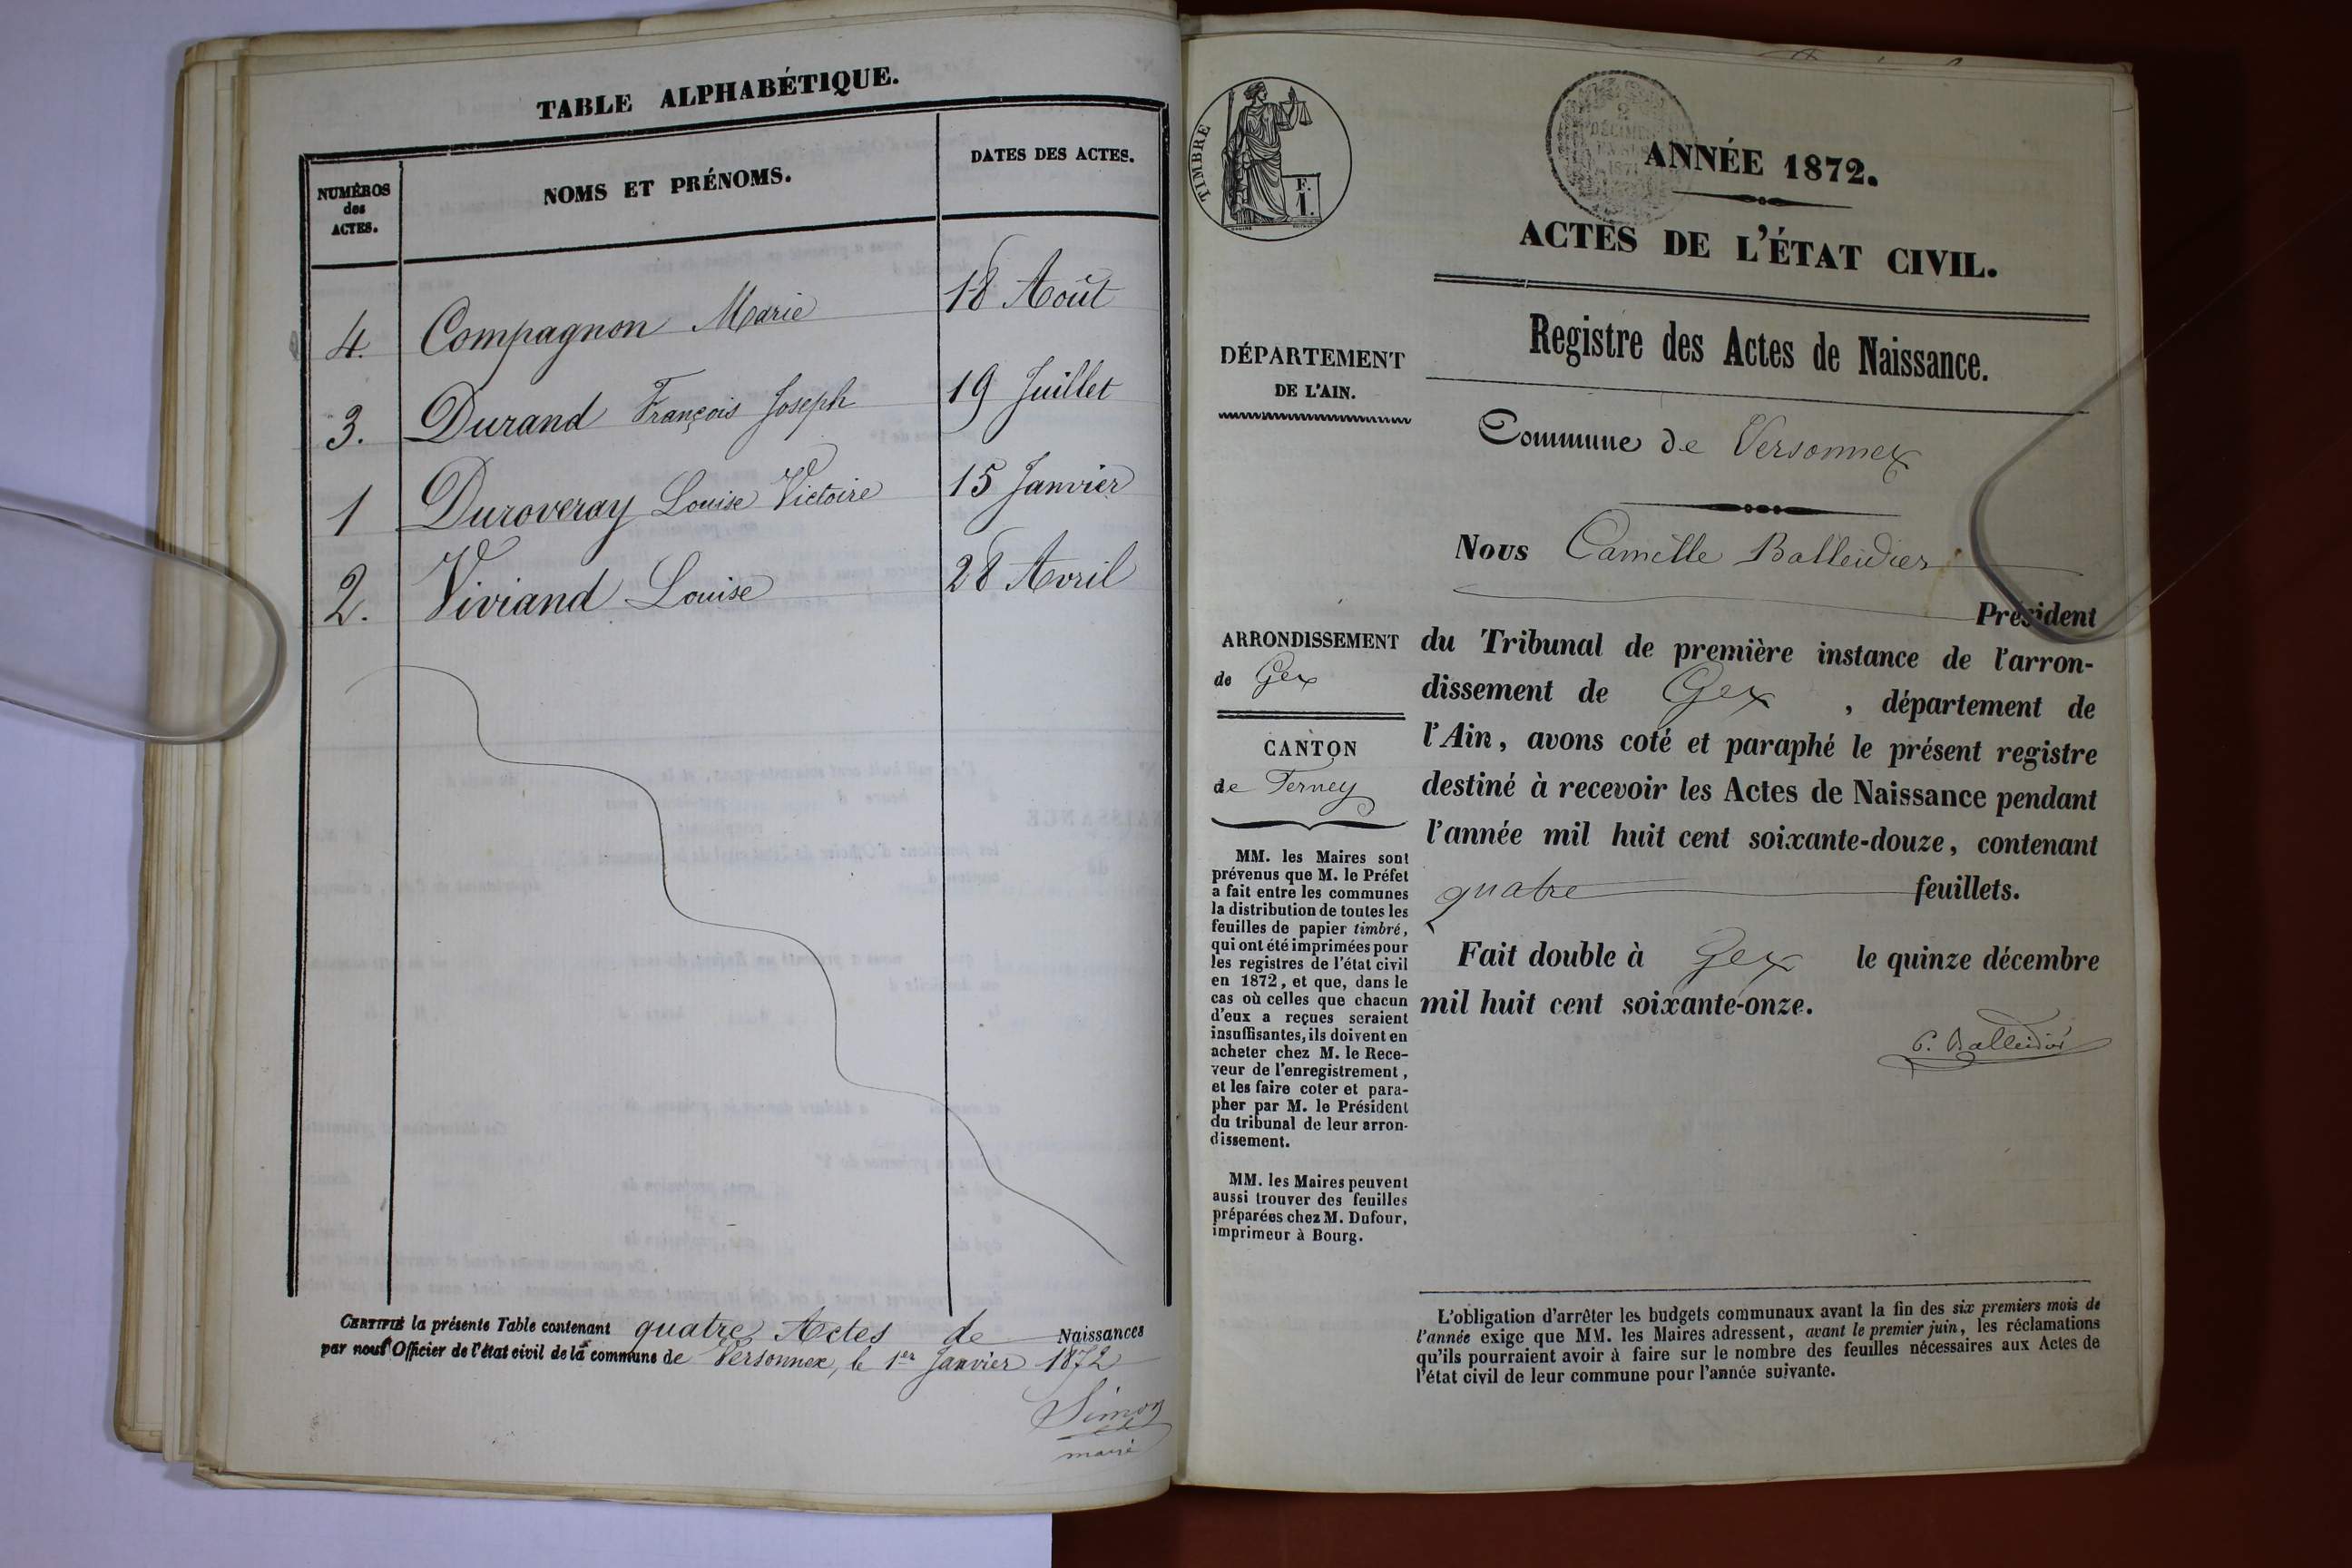 TABLE ALPHABÉTIQUE.
NUMÉROS
des
ACTES.
NOMS ET PRÉNOMS.
DATES DES ACTES.
4. Compagnon Marie 18 Août
3. Durand François Joseph 19 Juillet
1 Duroveray Louise Victoire 15 Janvier
2. Viviand Louise 28 Avril
CERTIFIÉ la présente Table contenant quatre Actes de Naissances
par nous Officier de l'état civil de la commune de Versonnex, le 1er Janvier 1872
Simon
maire
TIMBRE
F.
1.
2
DÉCIMES
1871
ANNÉE 1872.
ACTES DE L'ÉTAT CIVIL.
Registre des Actes de Naissance.
DÉPARTEMENT
DE L'AIN.
Commune de Versonnex
Nous Camille Balleidier
Président
ARRONDISSEMENT
de Gex
CANTON
de Ferney
du Tribunal de première instance de l'arron-
dissement de Gex, département de
l'Ain, avons coté et paraphé le présent registre
destiné à recevoir les Actes de Naissance pendant
l'année mil huit cent soixante-douze, contenant
quatre feuillets.
Fait double à Gex le quinze décembre
mil huit cent soixante-onze.
C. Balleidier
MM. les Maires sont
prévenus que M. le Préfet
a fait entre les communes
la distribution de toutes les
feuilles de papier timbré,
qui ont été imprimées pour
les registres de l'état civil
en 1872, et que, dans le
cas où celles que chacun
d'eux a reçues seraient
insuffisantes, ils doivent en
acheter chez M. le Rece-
veur de l'enregistrement,
et les faire coter et para-
pher par M. le Président
du tribunal de leur arron-
dissement.
MM. les Maires peuvent
aussi trouver des feuilles
préparées chez M. Dufour,
imprimeur à Bourg.
L'obligation d'arrêter les budgets communaux avant la fin des six premiers mois de
l'année exige que MM. les Maires adressent, avant le premier juin, les réclamations
qu'ils pourraient avoir à faire sur le nombre des feuilles nécessaires aux Actes de
l'état civil de leur commune pour l'année suivante.